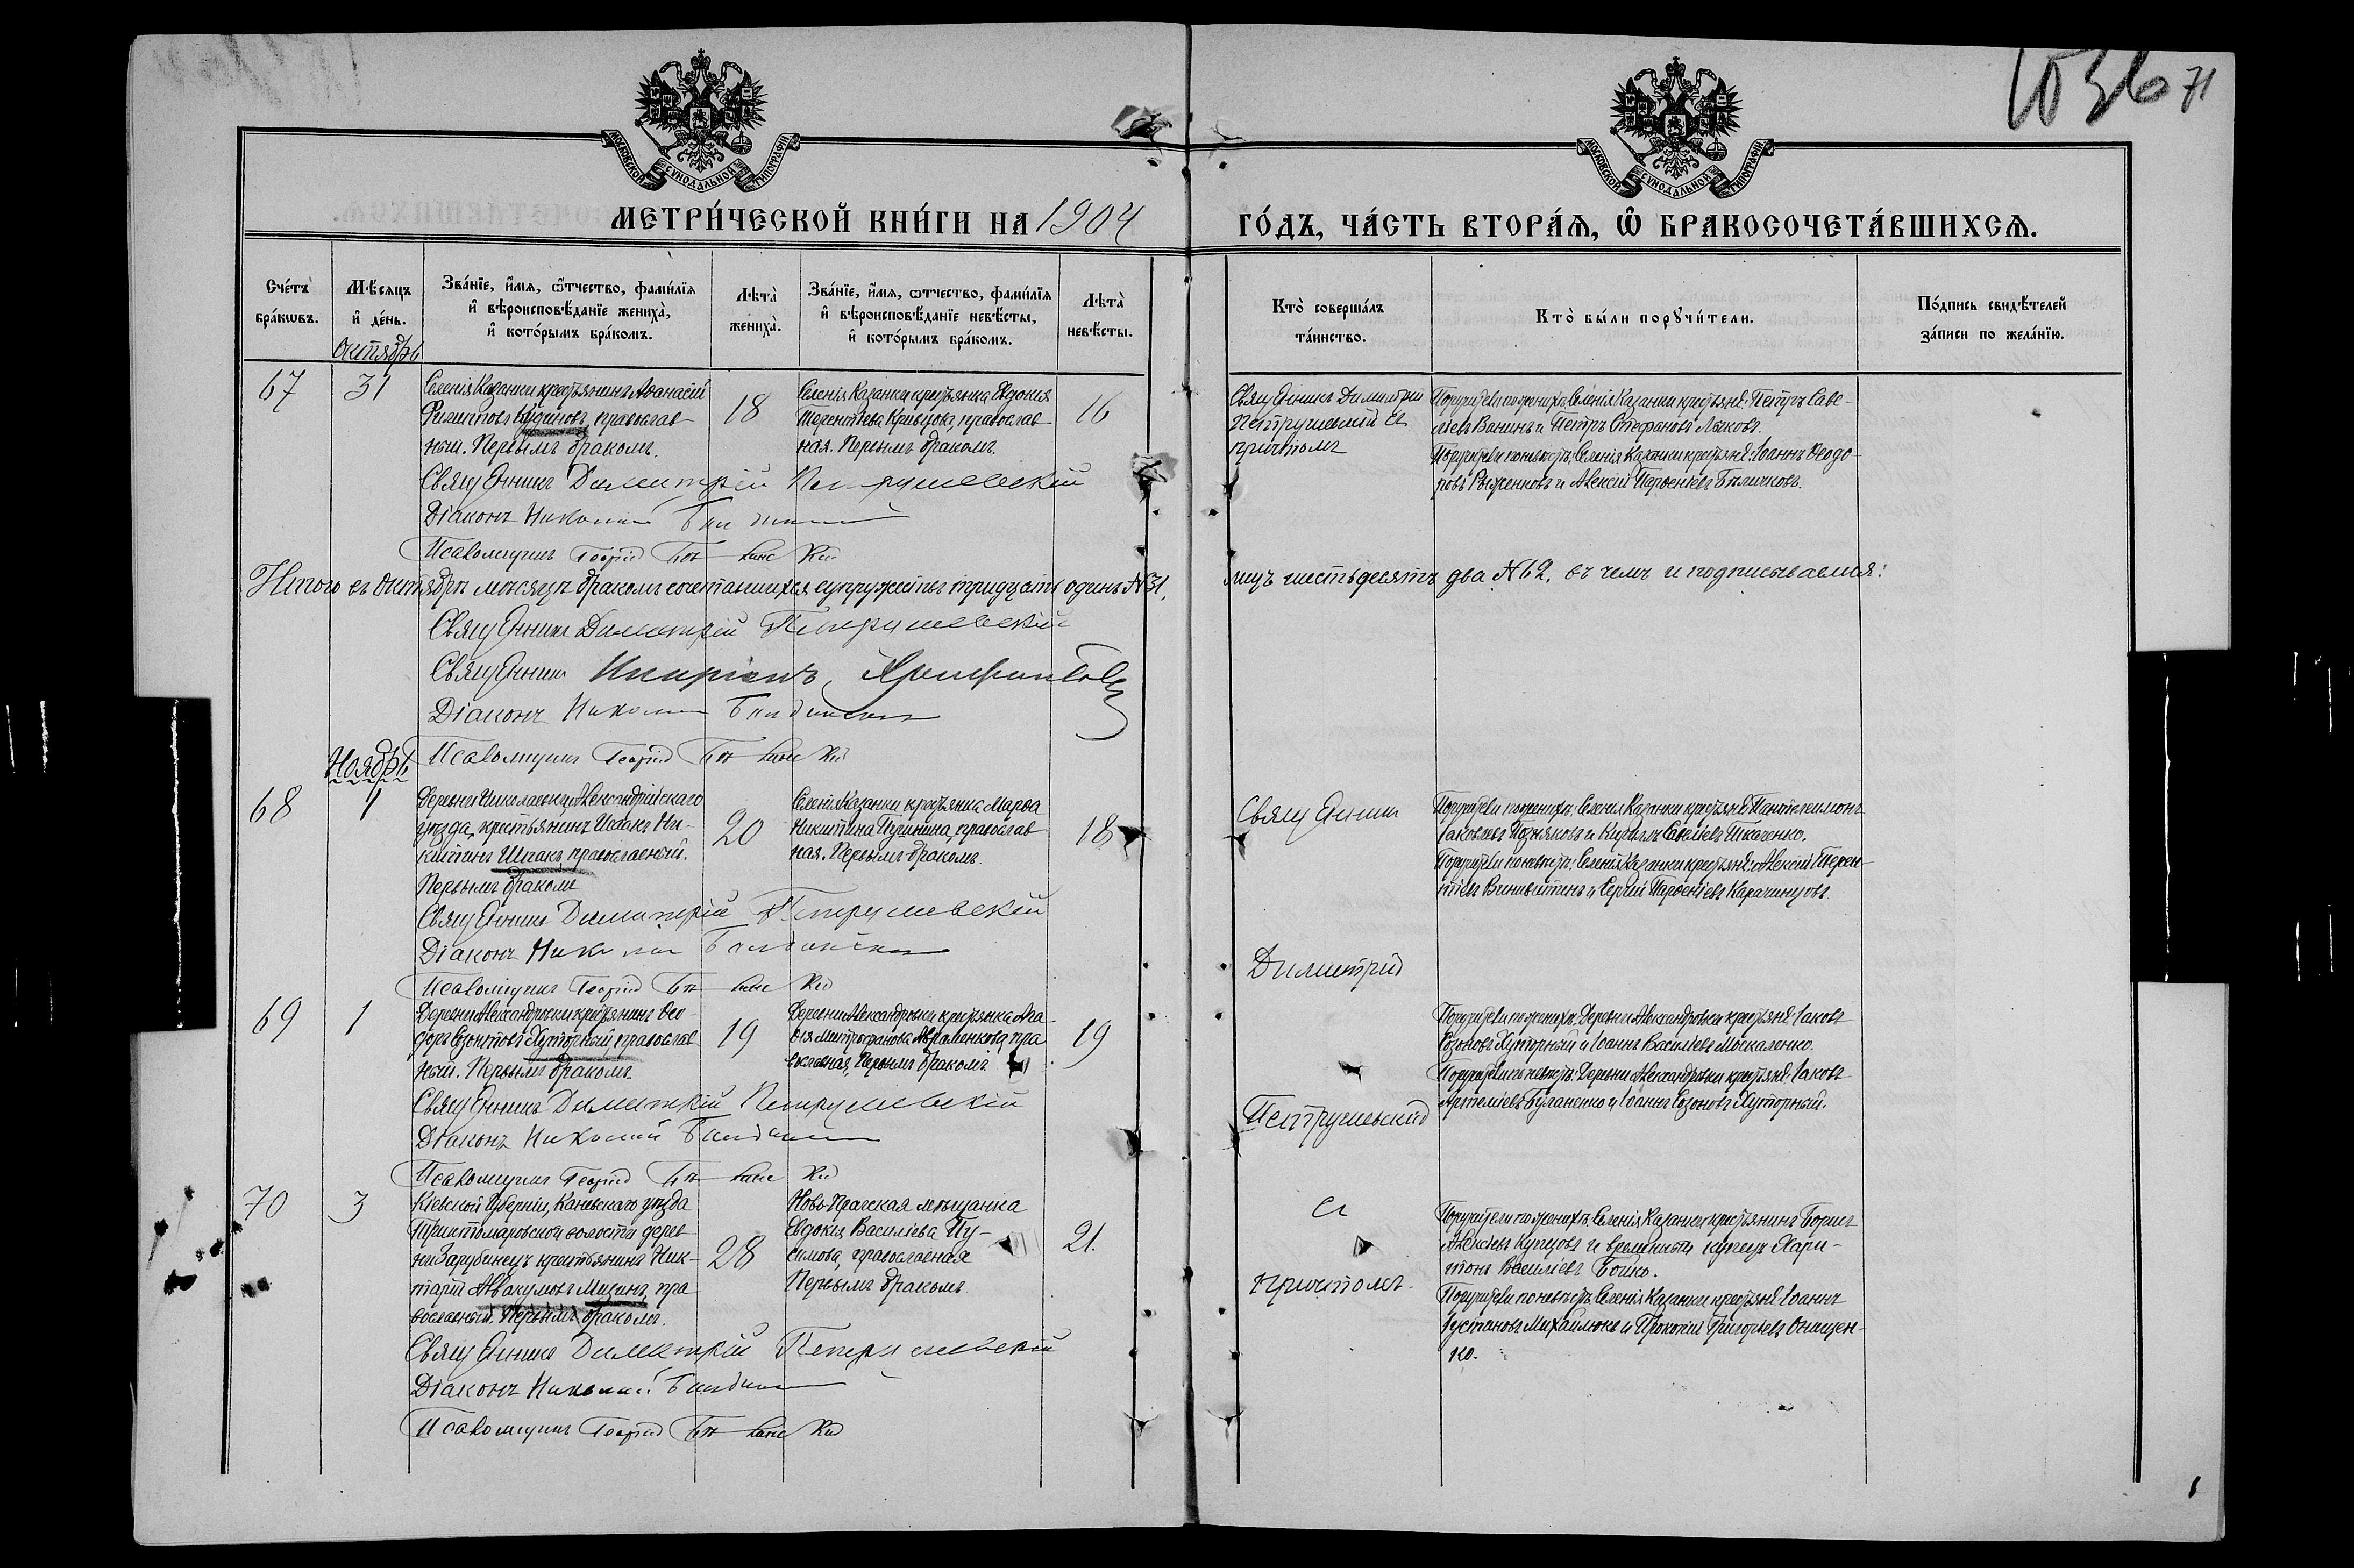 1036 71
МОСКОВСКОЙ СУНОДАЛЬНОЙ ТИПОГРАФІИ
МОСКОВСКОЙ СУНОДАЛЬНОЙ ТИПОГРАФІИ
МЕТРИ́ЧЕСКОЙ КНИ́ГИ НА 1904 ГО́ДЪ, ЧА́СТЬ ВТОРА́Ѧ, Ѽ БРАКОСОЧЕТА́ВШИХСѦ.
Сче́тъ бра́кѡвъ.
Мѣсяцъ и҆ де́нь.
Зва́нїе, и҆́мя, ѻ҆́тчество, фами́лїя
и҆ вѣроисповѣ́данїе жениха̀,
и҆ кото́рымъ бра́комъ.
Лѣта̀ жениха̀.
Зва́нїе, и҆́мя, ѻ҆́тчество, фами́лїя
и҆ вѣроисповѣ́данїе невѣ́сты,
и҆ кото́рымъ бра́комъ.
Лѣта̀ невѣ́сты.
Кто̀ соверша́лъ та́инство.
Кто̀ бы́ли порꙋчи́тели.
По́дпись свидѣ́телей за́писи по жела́нїю.
Октябрь
67
31
Селенія Казанки крестьянинъ Аѳанасій
Филиповъ Кудиновъ, православ-
ный. Первымъ бракомъ.
18
Селенія Казанки крестьянка Евдокія
Терентьева Кривцова, православ-
ная. Первымъ бракомъ.
16
Священникъ Димитрій
Петрушевскій съ
причтомъ
Поручители по женихѣ: Селенія Казанки крестьяне: Петръ Саве-
ліевъ Ванинъ и Петръ Стефановъ Лыковъ.
Поручители по невѣстѣ: Селенія Казанки крестьяне: Іоаннъ Ѳеодо-
ровъ Рыженковъ и Алексій Парѳеніевъ Бѣличковъ.
Священникъ Димитрій Петрушевскій
Діаконъ Николай
Псаломщикъ Георгій
Итого въ Октябрѣ мѣсяцѣ бракомъ сочетавшихся супружествъ тридцать одинъ №31, лицъ шестьдесятъ два №62, въ чемъ и подписываемся:
Священникъ Димитрій Петрушевскій
Священникъ
Діаконъ Николай
Псаломщикъ Георгій
Ноябрь
68
1
Деревни Николаевки, Александрійскаго
уѣзда, крестьянинъ Исаакъ Ни-
китинъ Шпакъ, православный.
Первымъ бракомъ
20
Селенія Казанки крестьянка Марѳа
Никитина Пугинина, православ
ная. Первымъ бракомъ.
18
Священникъ
Поручители по женихѣ: Селенія Казанки крестьяне: Пантелеимонъ
Іаковлевъ Позняковъ и Кириллъ Савеліевъ Ткаченко.
Поручители по невѣстѣ: Селенія Казанки крестьяне: Алексій Терен-
тіевъ Винивитинъ и Сергій Парѳеніевъ Карачинцовъ.
Священникъ Димитрій Петрушевскій
Діаконъ Николай
Псаломщикъ Георгій
Димитрій
69
1
Деревни Александровки крестьянинъ Ѳео-
доръ Созонтовъ Хуторный, православ
ный. Первымъ бракомъ.
19
Деревни Александровки крестьянка Ага-
ѳія Митрофанова Авраменкова, пра
вославная, Первымъ бракомъ
19
Поручители по женихѣ: Деревни Александровки крестьяне: Іаковъ
Созоновъ Хуторный и Іоаннъ Василіевъ Москаленко.
Поручители по невѣстѣ: Деревни Александровки крестьяне: Іаковъ
Артеміевъ Буланенко и Іоаннъ Созоновъ Хуторный.
Священникъ Димитрій Петрушевскій
Діаконъ Николай
Псаломщикъ Георгій
Петрушевскій
70
3
Кіевской губерніи, Каневскаго уѣзда
волости дерев-
ни Зарубинецъ крестьянинъ Нек-
тарій Аввакумовъ Мизинъ, пра
вославный. Первымъ бракомъ.
28
Ново-Прагская мѣщанка
Евдокія Василіева Пу-
симова, православная
Первымъ бракомъ.
21.
съ
причтомъ.
Поручители по женихѣ: Селенія Казанки крестьянинъ Борисъ
Алексѣевъ Купцовъ и временный купецъ Хари-
тонъ Василіевъ Бойко.
Поручители по невѣстѣ: Селенія Казанки крестьяне: Іоаннъ
Іустиновъ Михайлюкъ и Прокопій Григорьевъ Онищен-
ко.
Священникъ Димитрій Петрушевскій
Діаконъ Николай
Псаломщикъ Георгій